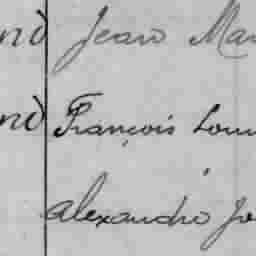 nd Jean Mar
nd François Loui
Alexandre Jo